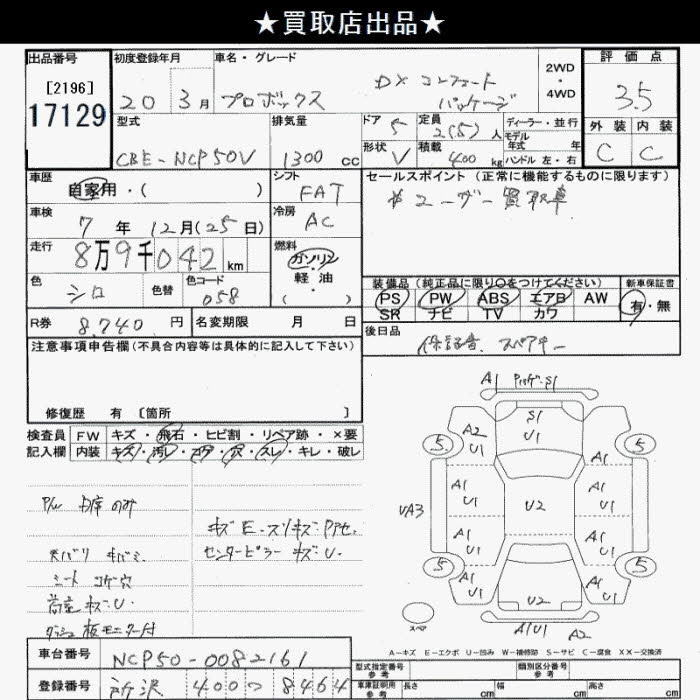 ★買取店出品★
出品番号
[2196]
17129
初度登録年月
20年 3月
車名・グレード
プロボックス
DX コンフォート
パッケージ
2WD
・
4WD
評価点
3.5
外装 内装
C C
型式
CBE-NCP50V
排気量
1300 cc
ドア 5
定員 2(5)人
形状 V
積載 400 kg
ディーラー・並行
モデル
年式 年
ハンドル 左・右
車歴
自家用・( )
シフト
FAT
車検
7年 12月(25日)
冷房
AC
走行
8万9千042 km
燃料
ガソリン
軽油
( )
色
シロ
色替
色コード
058
R券 8,740 円
名変期限 月 日
セールスポイント(正常に機能するものに限ります)
#ユーザー買取車
装備品(純正品に限り○をつけてください)
PS PW ABS エアB AW
SR ナビ TV カワ
新車保証書
有・無
後日品
保証書、スペアキー
注意事項申告欄(不具合内容等は具体的に記入して下さい)
修復歴 有 [箇所 ]
検査員
記入欄
FW キズ・飛石・ヒビ割・リペア跡・×要
内装 キズ・汚レ・コゲ・穴・スレ・キレ・破レ
P/W
キズE・スリキズ
天バリ キバミ
センターピラー キズU.
シート コゲ穴
荷室 キズU
モニター付
A1 S1
S1
U1
A2
U1
A1
U1
5 5
A1
U1
A1
U1
UA3
U2
A1
U1
A1
U1
5 5
A1
U1
A1
U1
U2
スペア
A1U1 A2
A-キズ E-エクボ U-凹み W-補修跡 S-サビ C-腐食 XX-交換済
車台番号
NCP50-0082161
登録番号
所沢 400 を 8464
型式指定番号
参考
類別区分番号
参考
車庫証明用
参考
長さ cm 幅 cm 高さ cm